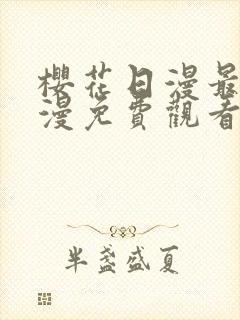 櫻花日漫最
漫免費觀看
半盞盛夏